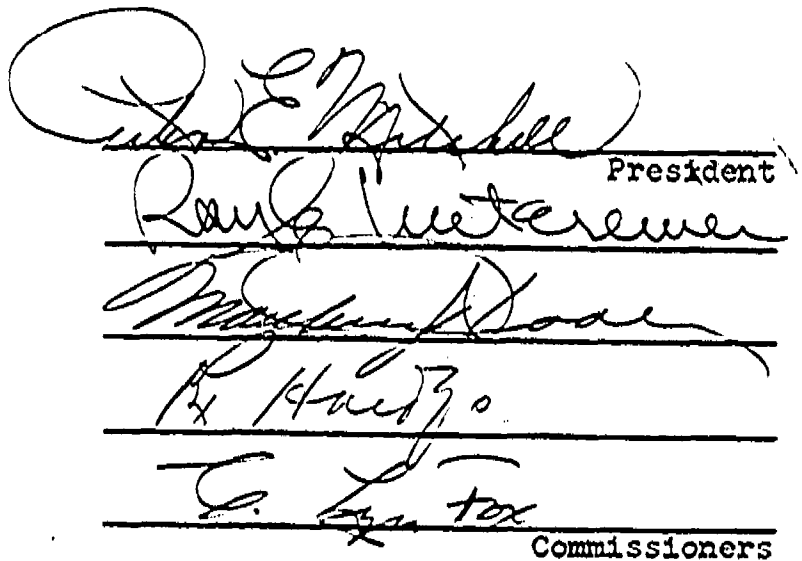 Peter E. Mitchell
President
Ray E. Untereiner
Matthew J. Dooley
Hardy
C. Lyn Fox
Commissioners